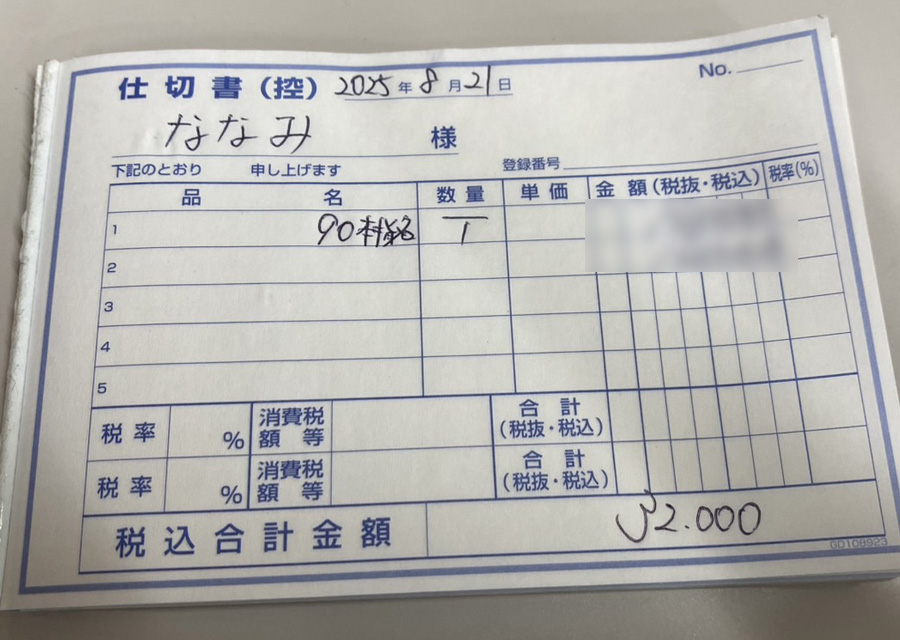 仕切書(控) 2025年8月21日
No.
ななみ 様
下記のとおり 申し上げます
登録番号
品名 数量 単価 金額(税抜・税込) 税率(%)
1 90 T
2
3
4
5
税率 % 消費税額等 合計(税抜・税込)
税率 % 消費税額等 合計(税抜・税込)
税込合計金額 32.000
GD108923